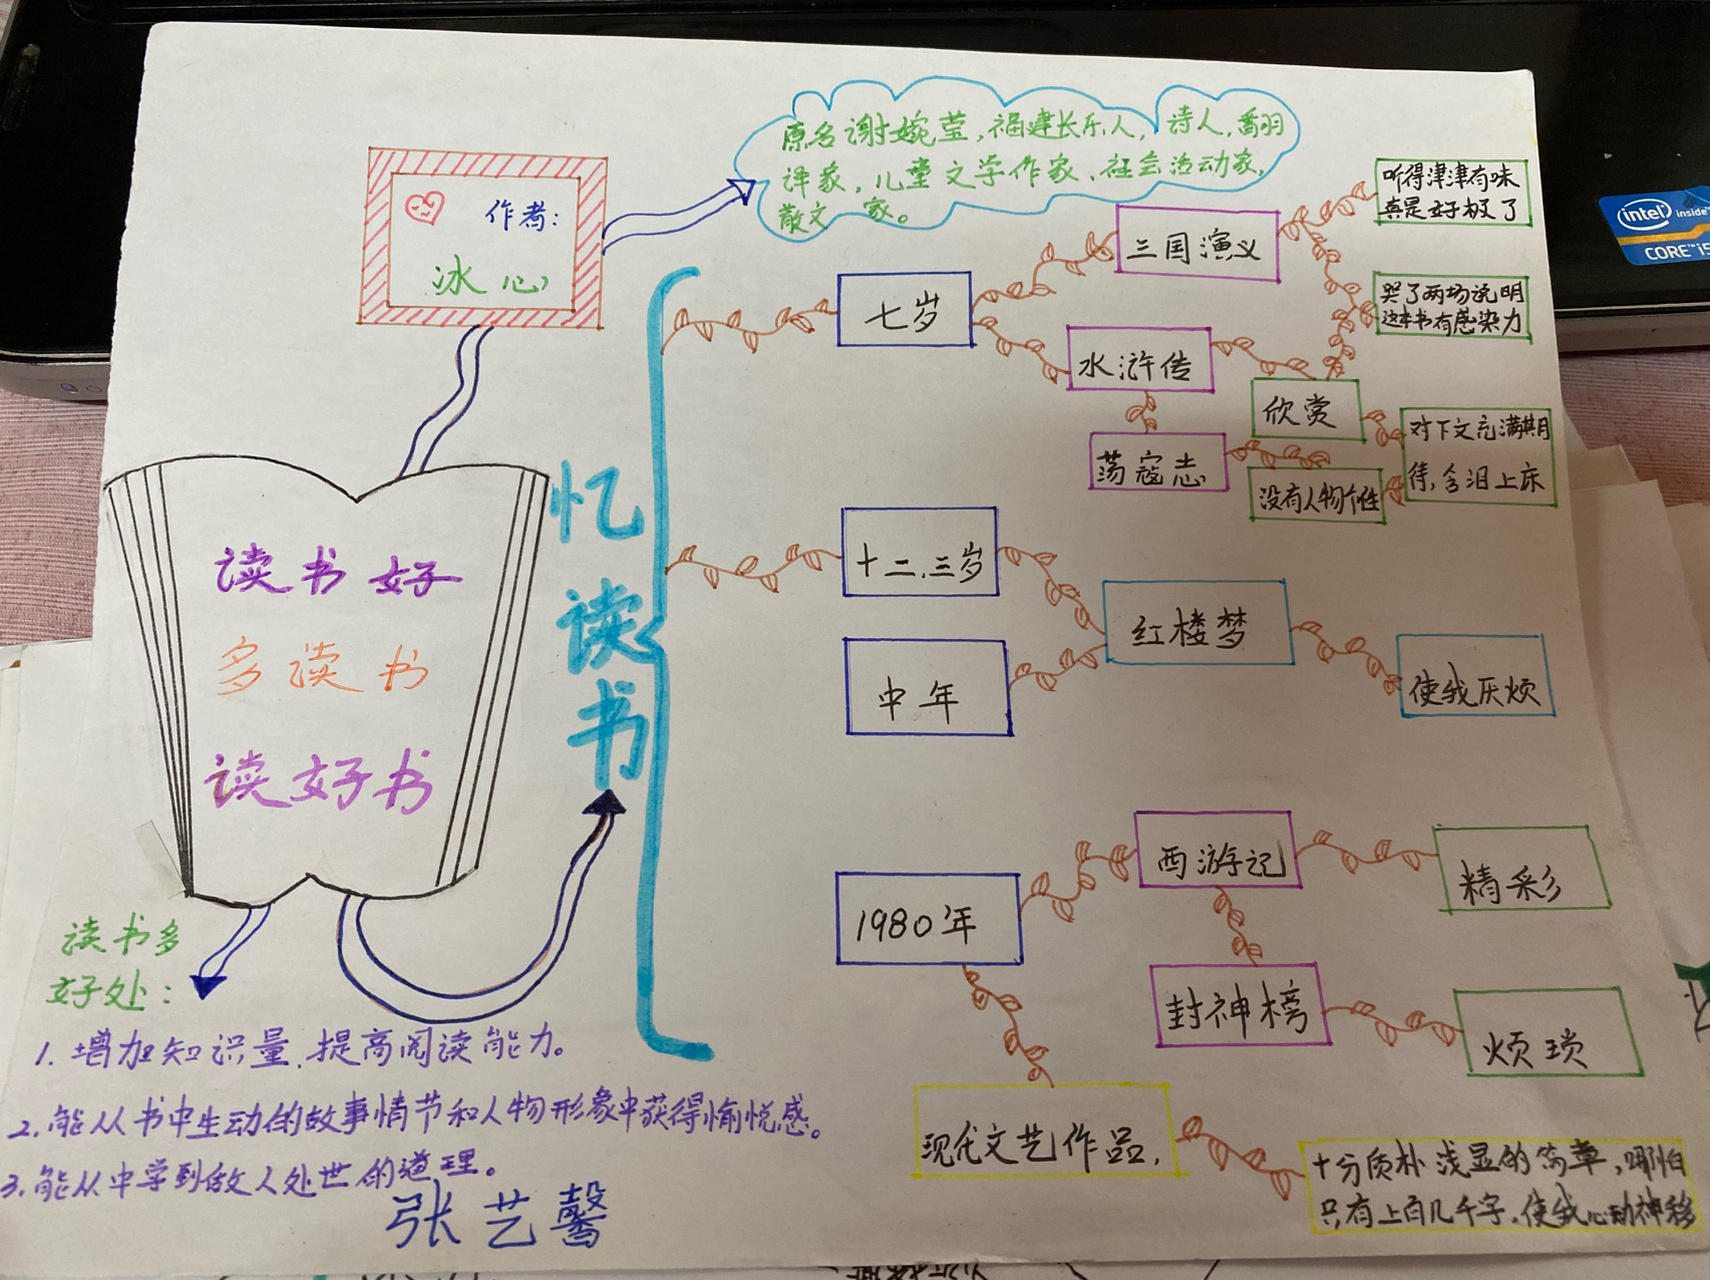 原名谢婉莹，福建长乐人，诗人，翻
译家，儿童文学作家、社会活动家，
散文 家。
作者：
冰心
忆读书
读书好
多读书
读好书
读书多
好处：
1. 增加知识量，提高阅读能力。
2. 能从书中生动的故事情节和人物形象中获得愉悦感。
3. 能从中学到做人处世的道理。
张艺馨
七岁
三国演义
听得津津有味
真是好极了
哭了两场说明
这本书有感染力
水浒传
欣赏
荡寇志
没有人物个性
对下文充满期
待，含泪上床
十二、三岁
中年
红楼梦
使我厌烦
1980年
西游记
精彩
封神榜
烦琐
现代文艺作品，
十分质朴浅显的 章，哪怕
只有上百几千字，使我心动神移
intel inside
CORE i5